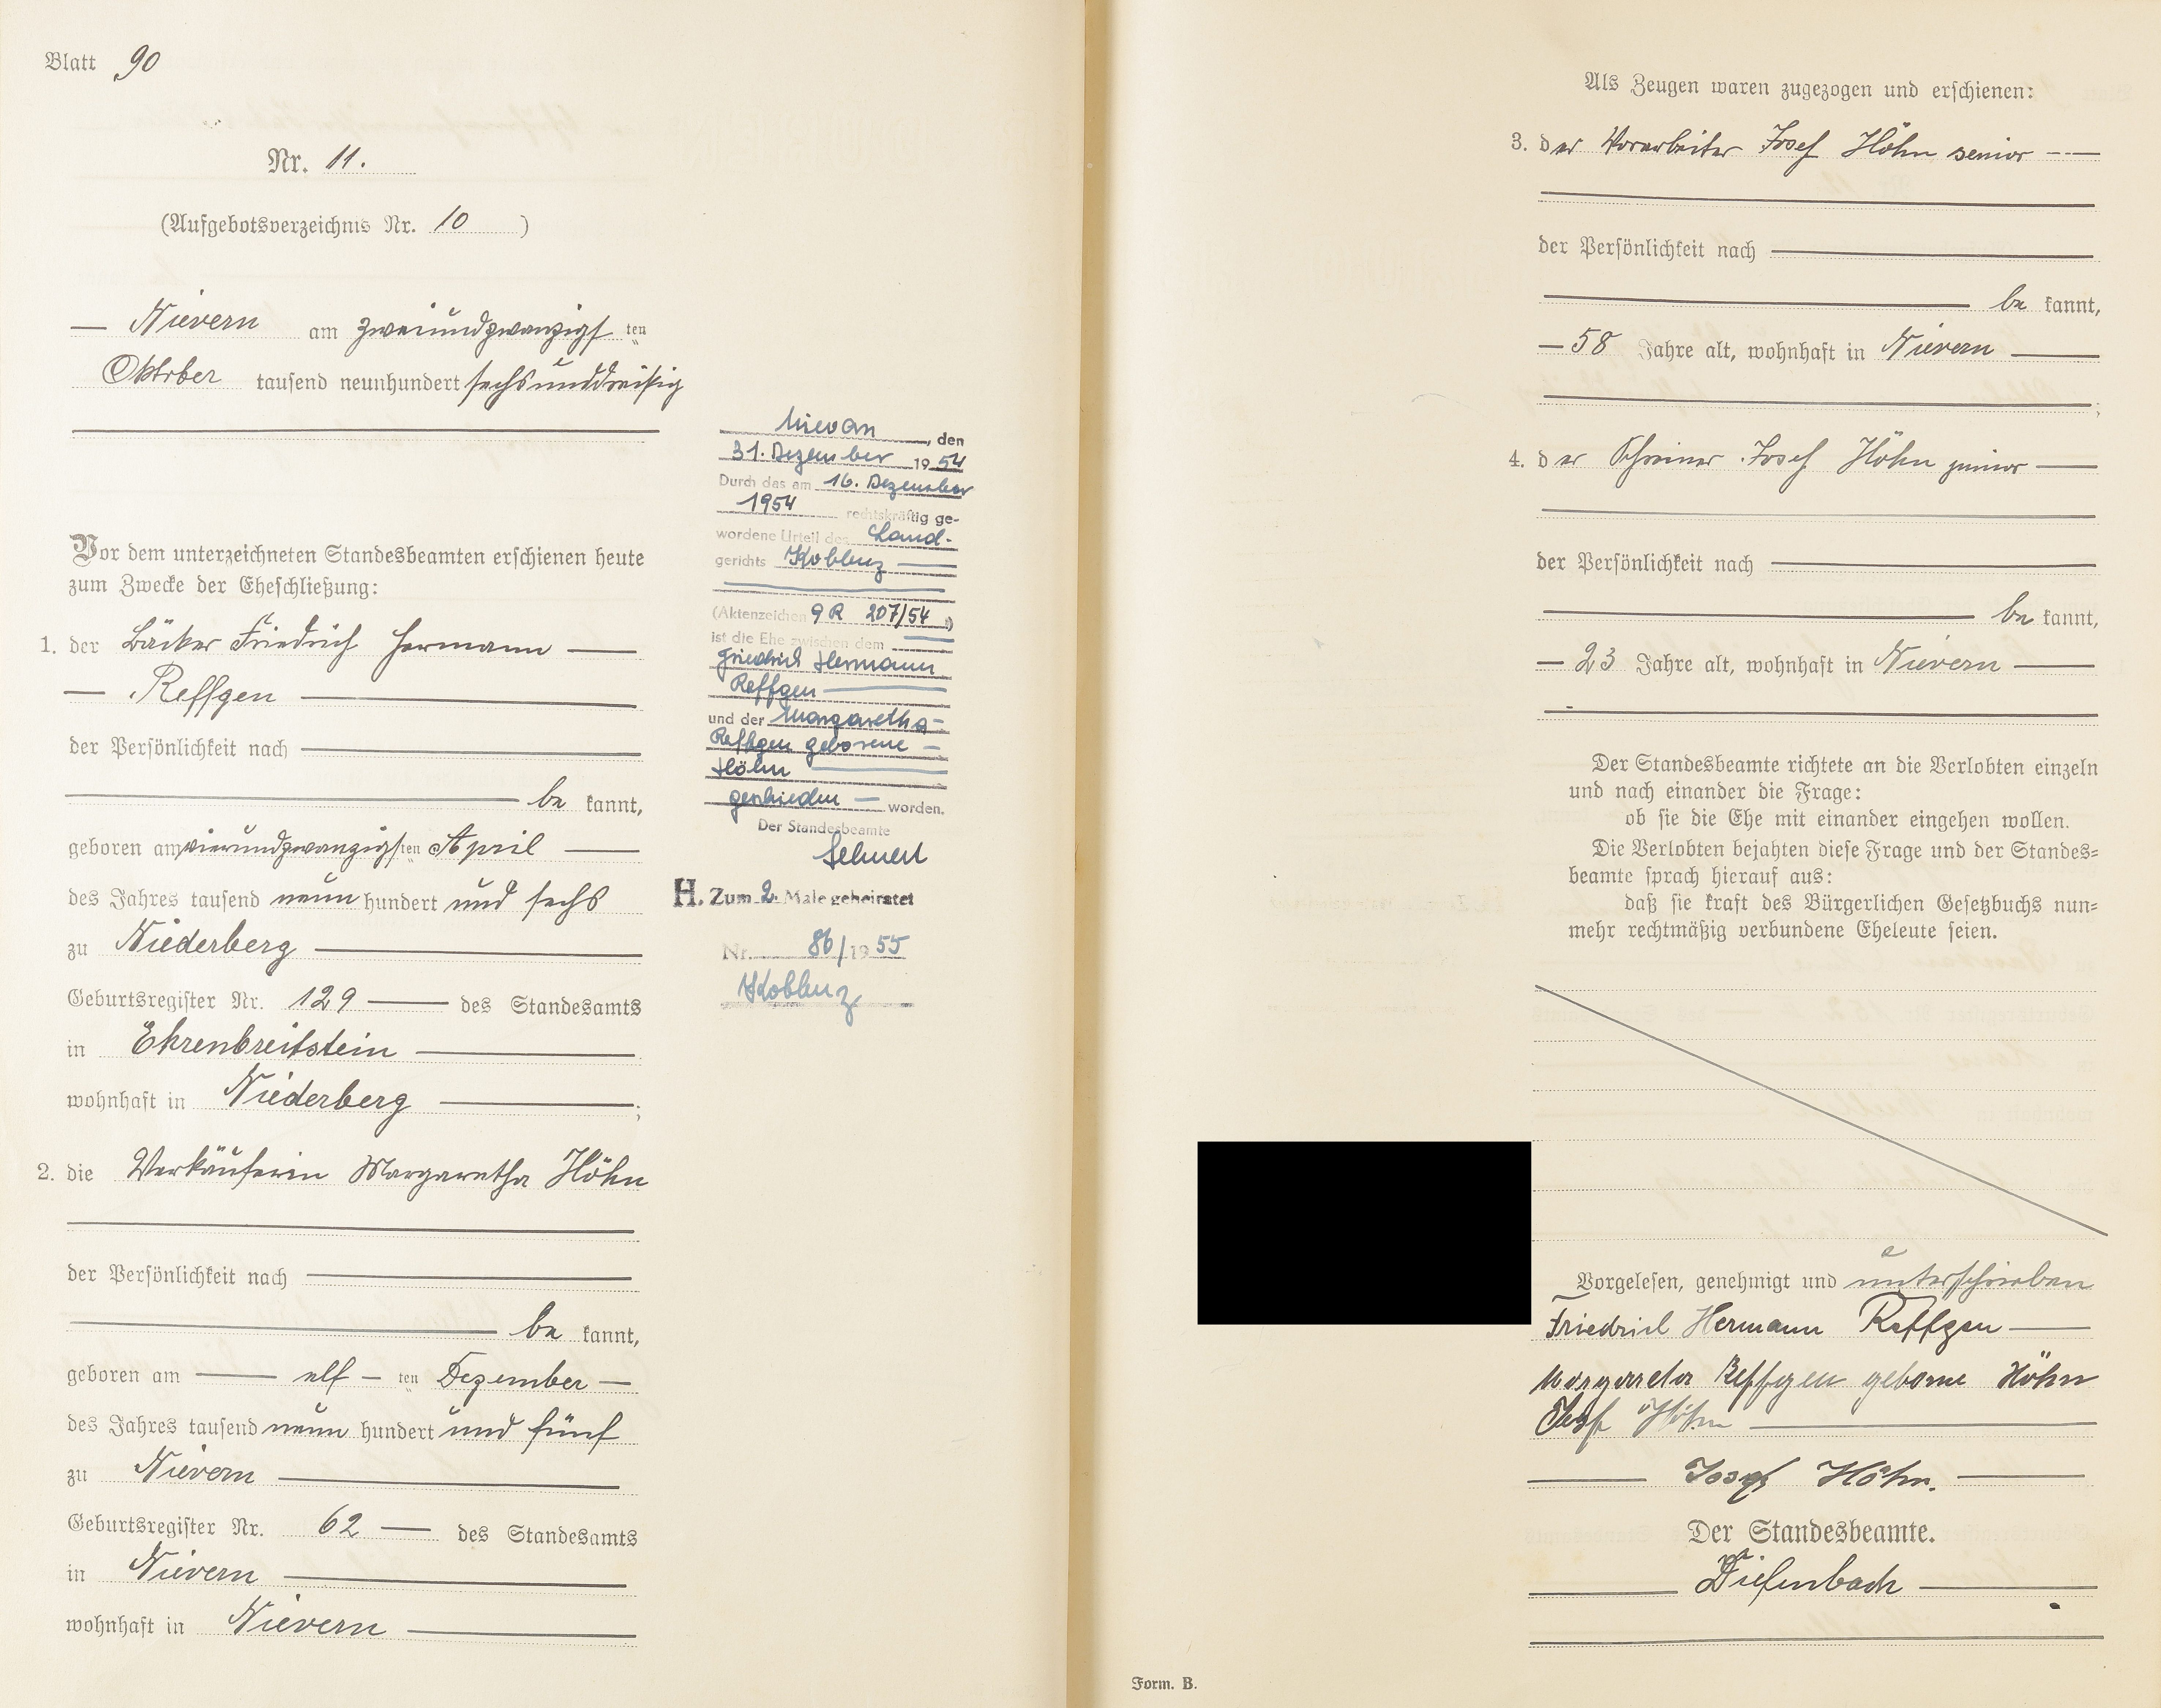 Blatt 90
Nr. 11.
(Aufgebotsverzeichnis Nr. 10 )
— Nievern am zweiundzwanzigsten
Oktober tausend neunhundert sechsunddreißig
Vor dem unterzeichneten Standesbeamten erschienen heute
zum Zwecke der Eheschließung:
1. der Bäcker Friedrich Hermann —
— Reffgen —
der Persönlichkeit nach —
— be kannt,
geboren am vierundzwanzigsten April —
des Jahres tausend neun hundert und sechs
zu Niederberg —
Geburtsregister Nr. 129 — des Standesamts
in Ehrenbreitstein —
wohnhaft in Niederberg — ;
2. die Verkäuferin Margaretha Höhn
der Persönlichkeit nach —
— be kannt,
geboren am — elf — ten Dezember —
des Jahres tausend neun hundert und fünf
zu Nievern —
Geburtsregister Nr. 62 — des Standesamts
in Nievern —
wohnhaft in Nievern —
Nievern, den
31. Dezember 1954
Durch das am 16. Dezember
1954 rechtskräftig ge-
wordene Urteil des Land-
gerichts Koblenz —
(Aktenzeichen 9 R 207/54 )
ist die Ehe zwischen dem —
Friedrich Hermann
Reffgen —
und der Margaretha
Reffgen geborene —
Höhn —
geschieden — worden.
Der Standesbeamte
H. Zum 2. Male geheiratet
Nr. 86/1955
Koblenz
Als Zeugen waren zugezogen und erschienen:
3. der Vorarbeiter Josef Höhn senior —
der Persönlichkeit nach —
— be kannt,
— 58 Jahre alt, wohnhaft in Nievern —
;
4. der Schreiner Josef Höhn junior —
der Persönlichkeit nach —
— be kannt,
— 23 Jahre alt, wohnhaft in Nievern —
Der Standesbeamte richtete an die Verlobten einzeln
und nach einander die Frage:
ob sie die Ehe mit einander eingehen wollen.
Die Verlobten bejahten diese Frage und der Standes=
beamte sprach hierauf aus:
daß sie kraft des Bürgerlichen Gesetzbuchs nun=
mehr rechtmäßig verbundene Eheleute seien.
Vorgelesen, genehmigt und unterschrieben
Friedrich Hermann Reffgen —
Margareta Reffgen geborne Höhn
Josef Höhn —
— Josef Höhn. —
Der Standesbeamte.
— Diefenbach —
Form. B.